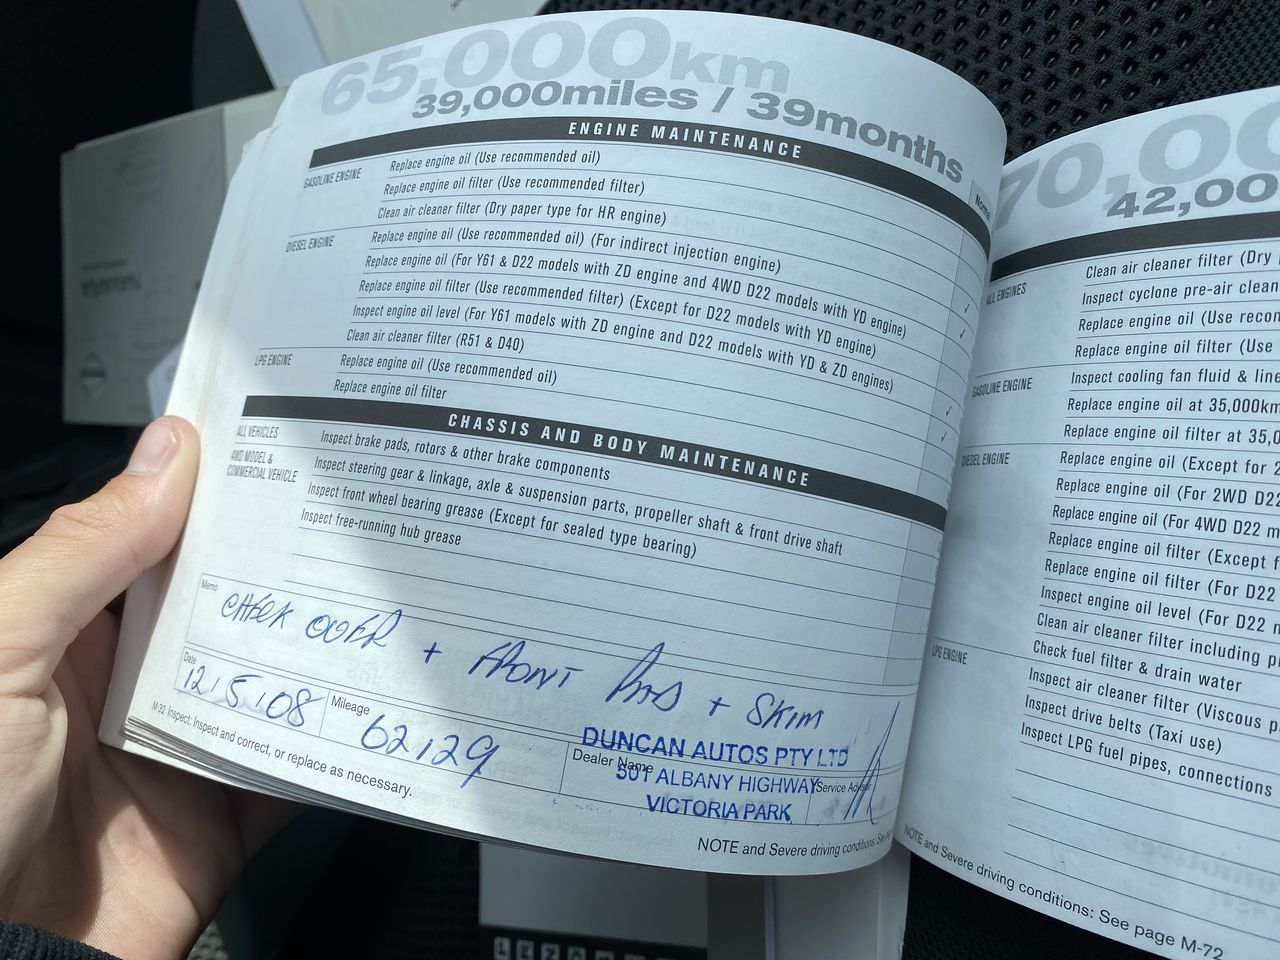 65,000km
39,000miles / 39months
ENGINE MAINTENANCE
Normal
GASOLINE ENGINE
Replace engine oil (Use recommended oil)
Replace engine oil filter (Use recommended filter)
Clean air cleaner filter (Dry paper type for HR engine)
DIESEL ENGINE
Replace engine oil (Use recommended oil) (For indirect injection engine)
Replace engine oil (For Y61 & D22 models with ZD engine and 4WD D22 models with YD engine)
Replace engine oil filter (Use recommended filter) (Except for D22 models with YD engine)
Inspect engine oil level (For Y61 models with ZD engine and D22 models with YD & ZD engines)
Clean air cleaner filter (R51 & D40)
LPG ENGINE
Replace engine oil (Use recommended oil)
Replace engine oil filter
CHASSIS AND BODY MAINTENANCE
ALL VEHICLES
Inspect brake pads, rotors & other brake components
4WD MODEL &
COMMERCIAL VEHICLE
Inspect steering gear & linkage, axle & suspension parts, propeller shaft & front drive shaft
Inspect front wheel bearing grease (Except for sealed type bearing)
Inspect free-running hub grease
Memo
CHECK OVER + FRONT PADS + SKIM
Date
12/5/08
Mileage
62129
Dealer Name
DUNCAN AUTOS PTY LTD
501 ALBANY HIGHWAY
VICTORIA PARK
Service Advisor
M-32 Inspect: Inspect and correct, or replace as necessary.
NOTE and Severe driving conditions: See
70,00
42,00
ALL ENGINES
Clean air cleaner filter (Dry
Inspect cyclone pre-air clean
Replace engine oil (Use recon
Replace engine oil filter (Use
Inspect cooling fan fluid & line
GASOLINE ENGINE
Replace engine oil at 35,000km
Replace engine oil filter at 35,0
DIESEL ENGINE
Replace engine oil (Except for 2
Replace engine oil (For 2WD D22
Replace engine oil (For 4WD D22 m
Replace engine oil filter (Except f
Replace engine oil filter (For D22
Inspect engine oil level (For D22 m
Clean air cleaner filter including p
Check fuel filter & drain water
LPG ENGINE
Inspect air cleaner filter (Viscous p
Inspect drive belts (Taxi use)
Inspect LPG fuel pipes, connections
NOTE and Severe driving conditions: See page M-72